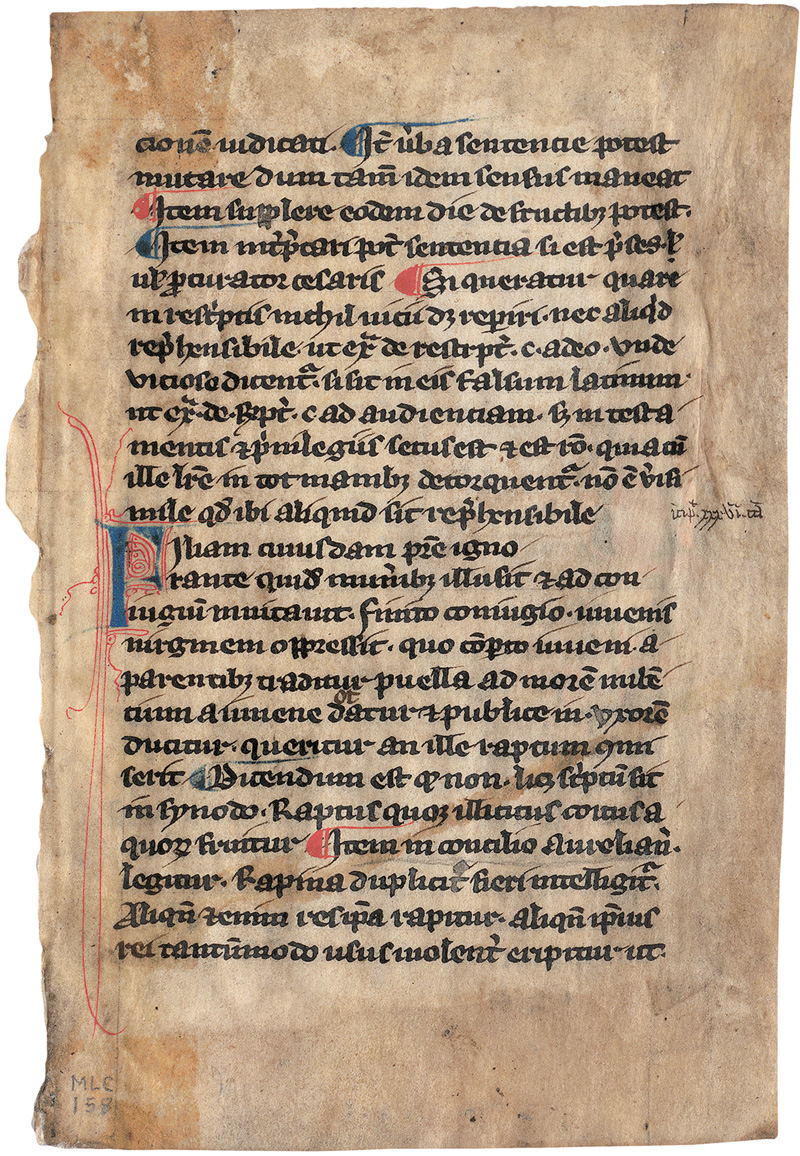 cionē iudicati. Itē ūba sentencie potest
mutare dum tam̄ idem sensus maneat
Item supplere eodem die de fructibꝫ potest.
Itēm int̄p̄tari pot̄ sentencia si est p̄ses ꝉ
uꝉ ꝓcurator cesaris Si queratur quare
in resc̄ptis nichil uicii dꝫ reperiri. nec aliq̄d
rep̄hensibile. ut ex̄ de rescrpt̄. c. adeo. vnde
viciose dicent̄. si sit in eis falsum latinum.
ut ex̄. de. rcpt̄. c ad audienciam. sꝫ in testa
mentis ⁊ p̄uilegiis secus est ⁊ est rō. quia cū
ille lr̄e in tot manibꝫ detorquent̄. nō ē v̄isi
mile qd̄ ibi aliquid sit rep̄hensibile
Filiam cuiusdam pr̄e igno
rante quid̄ mun̄ibꝫ illusit ⁊ ad con
iugiū inuitauit. finito coniugio. iuuenis
uirginem oppressit. quo cōpto iuueni a
parentibꝫ traditur puella ad morē nubē
cium a iuuene dotatur ⁊ publice in. vxorē
ducitur. queritur an ille raptum ꝯmi
serit Dicendum est ꝙ non. licꝫ sc̄ptū sit
in synodo. Raptus quoqꝫ illicitus coitus a
quoqꝫ fruitur Item in concilio Aurelian̄.
legitur. Rapina duplicit̄ fieri intelligit̄.
Aliqn̄ ⁊enim res ip̄a rapitur. aliqn̄ ip̄ius
rei tantūmodo usus uiolent̄ eripitur ut
MLC
158